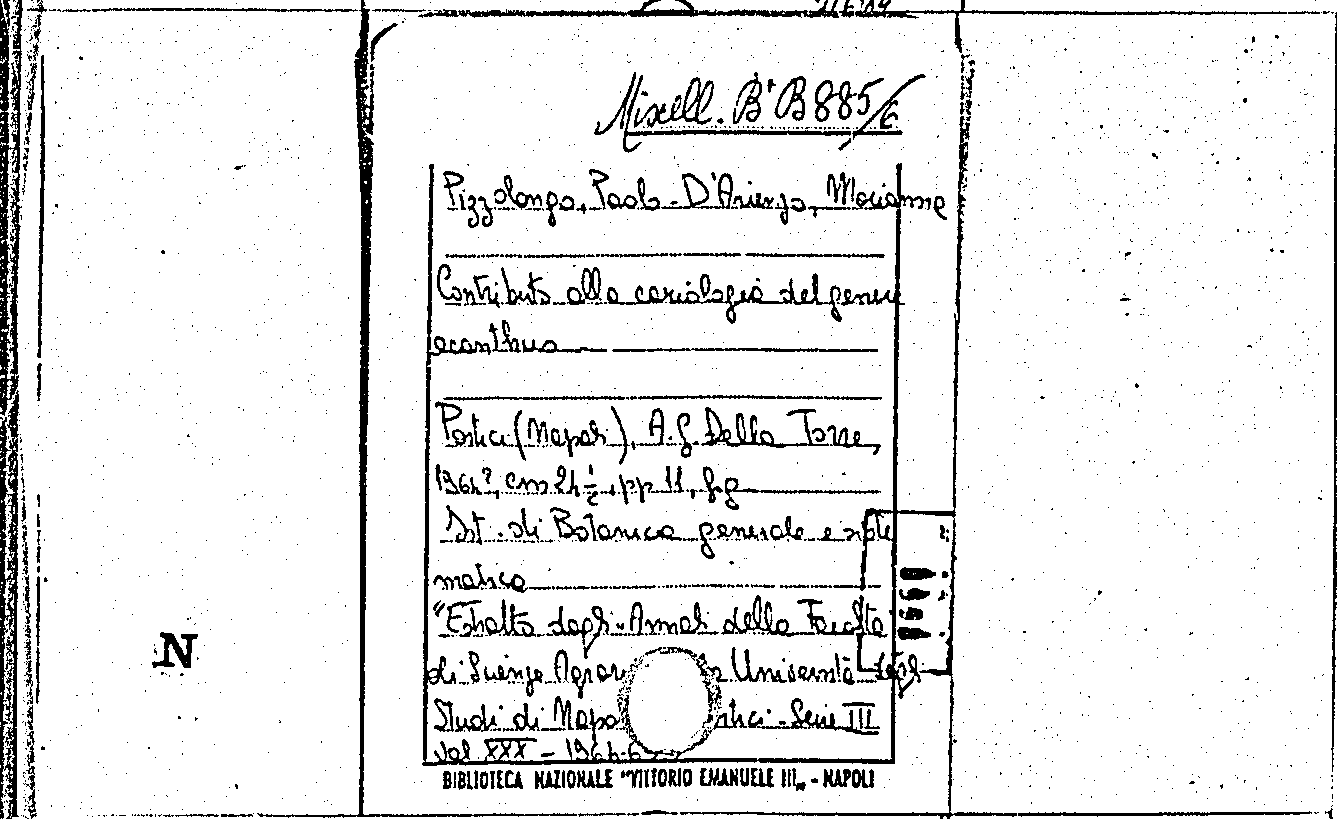 Miscell. B'B885/6
Pizzolongo, Paolo - D'Arienzo, Marianne
Contributo alla cariologia del genere
acanthus
Portici (Napoli), A.G. Della Torre,
1964?, cm 24 1/2, pp 11, fig
Ist. di Botanica generale e siste
matica
"Estratto dagli Annali della Facoltà
di Scienze Agrar Università degli
Studi di Napo rtici - Serie III
Vol XXX - 1964-6
N
BIBLIOTECA NAZIONALE "VITTORIO EMANUELE III„ - NAPOLI